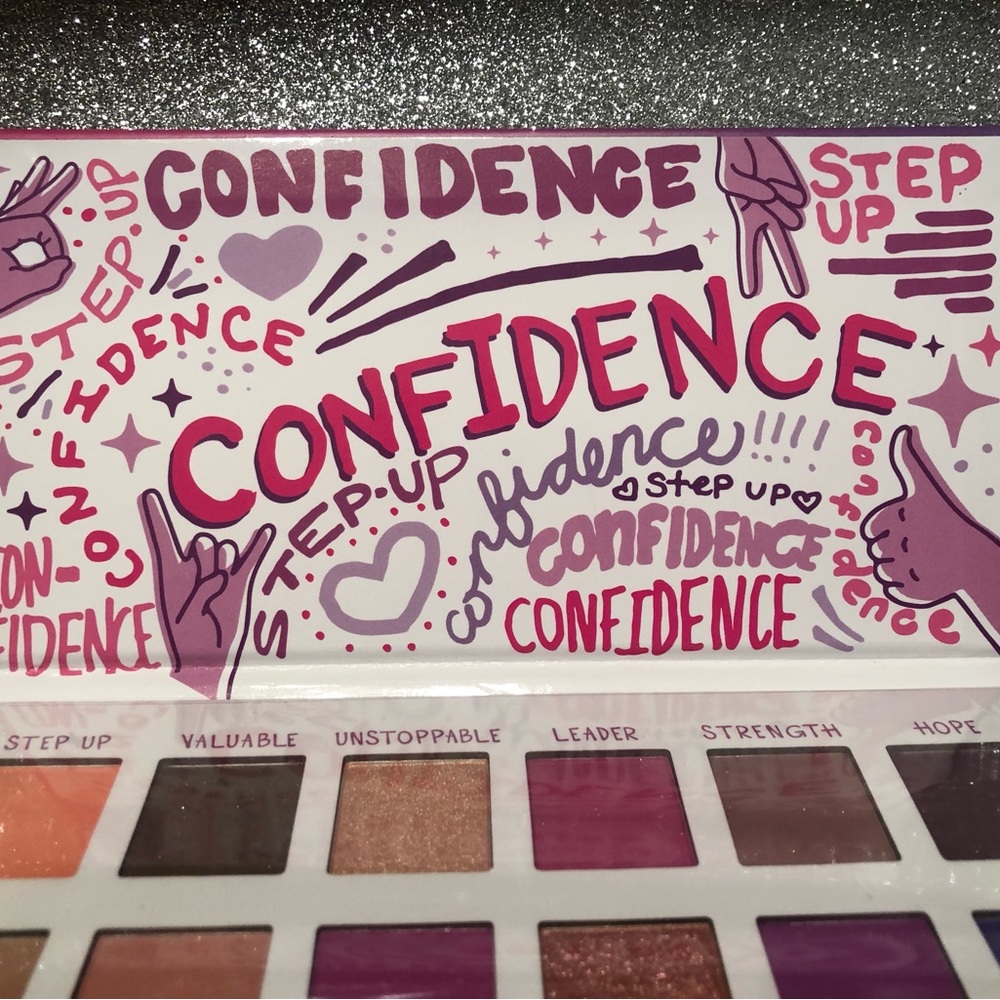 CONFIDENCE
STEP UP
STEP-UP
CONFIDENCE
CONFIDENCE
STEP-UP
confidence!!!!
step up
CONFIDENCE
CONFIDENCE
confidence
CON-
FIDENCE
STEP UP VALUABLE UNSTOPPABLE LEADER STRENGTH HOPE